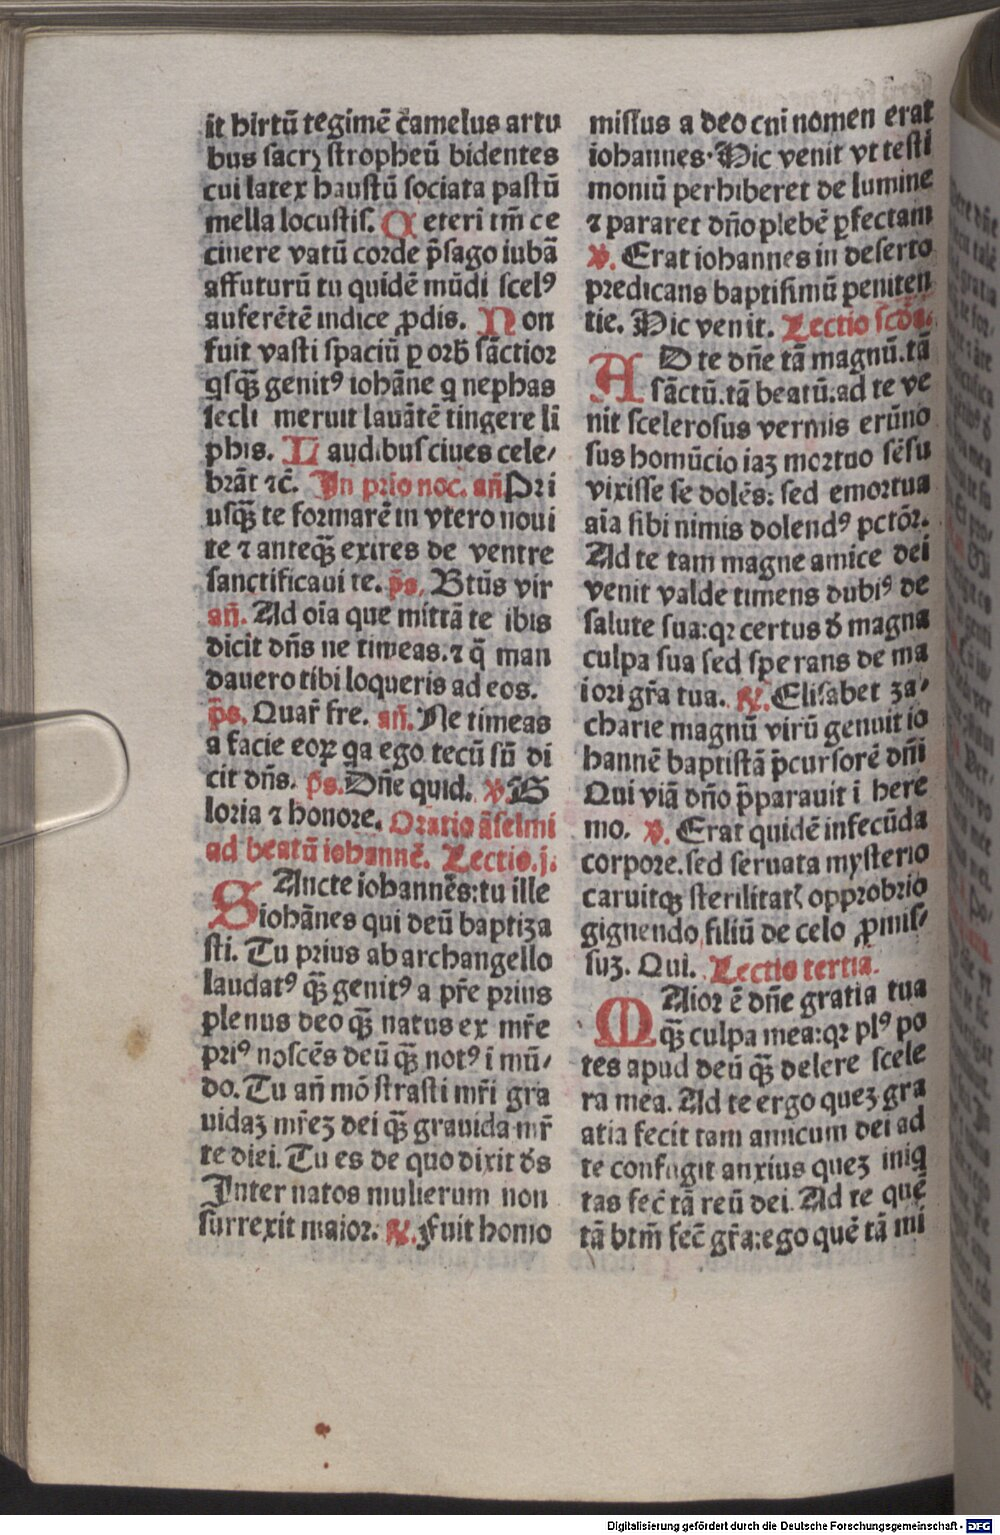 it hirtū tegimē camelus artu
bus sacrꝫ stropheū bidentes
cui latex haustū sociata pastū
mella locustis. Ceteri tm̄ ce
cinere vatū corde p̄sago iubā
affuturū tu quidē mūdi scelꝰ
auferētē indice ꝓdis. Non
fuit vasti spaciū ꝑ orb̄ sāctior
qͥsqȝ genitꝰ iohāne q nephas
secli meruit lauātē tingere lī
phis. Laudibus ciues cele⸗
brāt ⁊c̄. In prīo noc̄. an̄ Pri
usqȝ te formarē in vtero noui
te ⁊ anteqȝ exires de ventre
sanctificaui te. p̄s. Btūs vir
an̄. Ad oīa que mittā te ibis
dicit dn̄s ne timeas. ⁊ q̄ man
dauero tibi loqueris ad eos.
p̄s. Quar̄ fre. an̄. Ne timeas
a facie eoꝝ qa ego tecū sū di
cit dn̄s. p̄s. Dn̄e quid. ℣ G
loria ⁊ honore. Oratio āselmi
ad beatū iohannē. Lectio .j.
SAncte iohannes: tu ille
iohānes qui deū baptiza
sti. Tu prius ab archangello
laudatꝰ qȝ genitꝰ a pr̄e prius
plenus deo qȝ natus ex mr̄e
priꝰ noscēs deū qȝ notꝰ ī mū⸗
do. Tu an̄ mōstrasti mr̄i gra
uidaȝ mr̄eȝ dei qȝ grauida mr̄
te diei. Tu es de quo dixit ds̄
Inter natos mulierum non
surrexit maior. ℟. Fuit homo
missus a deo cui nomen erat
iohannes. Hic venit vt testi
moniū perhiberet de lumine
⁊ pararet dn̄o plebē ꝑfectam
℣. Erat iohannes in deserto
predicans baptismū peniten
tie. Hic venit. Lectio scd̄a.
AD te dn̄e tā magnū. tā
sāctū. tā beatū. ad te ve
nit scelerosus vermis erūno
sus homūcio iaȝ mortuo sēsu
vixisse se dolēs: sed emortua
aīa sibi nimis dolendꝰ pctōr.
Ad te tam magne amice dei
venit valde timens dubiꝰ de
salute sua: qꝛ certus ď magna
culpa sua sed sperans de ma
iori gr̄a tua. ℟. Elisabet za⸗
charie magnū virū genuit io
hannē baptistā p̄cursorē dn̄i
Qui viā dn̄o p̄parauit ī here
mo. ℣. Erat quidē infecūda
corpore. sed seruata mysterio
caruitqȝ sterilitatꝭ opprobrio
gignendo filiū de celo ꝓmis⸗
suȝ. Qui. Lectio tertia.
MAior ē dn̄e gratia tua
qȝ culpa mea: qꝛ plꝰ po
tes apud deū qȝ delere scele
ra mea. Ad te ergo queȝ gra
atia fecit tam amicum dei ad
te confugit anxius queȝ iniq
tas fec̄ tā reū dei. Ad te quē
tā btm̄ fec̄ gr̄a: ego quē tā mi
Digitalisierung gefördert durch die Deutsche Forschungsgemeinschaft - DFG